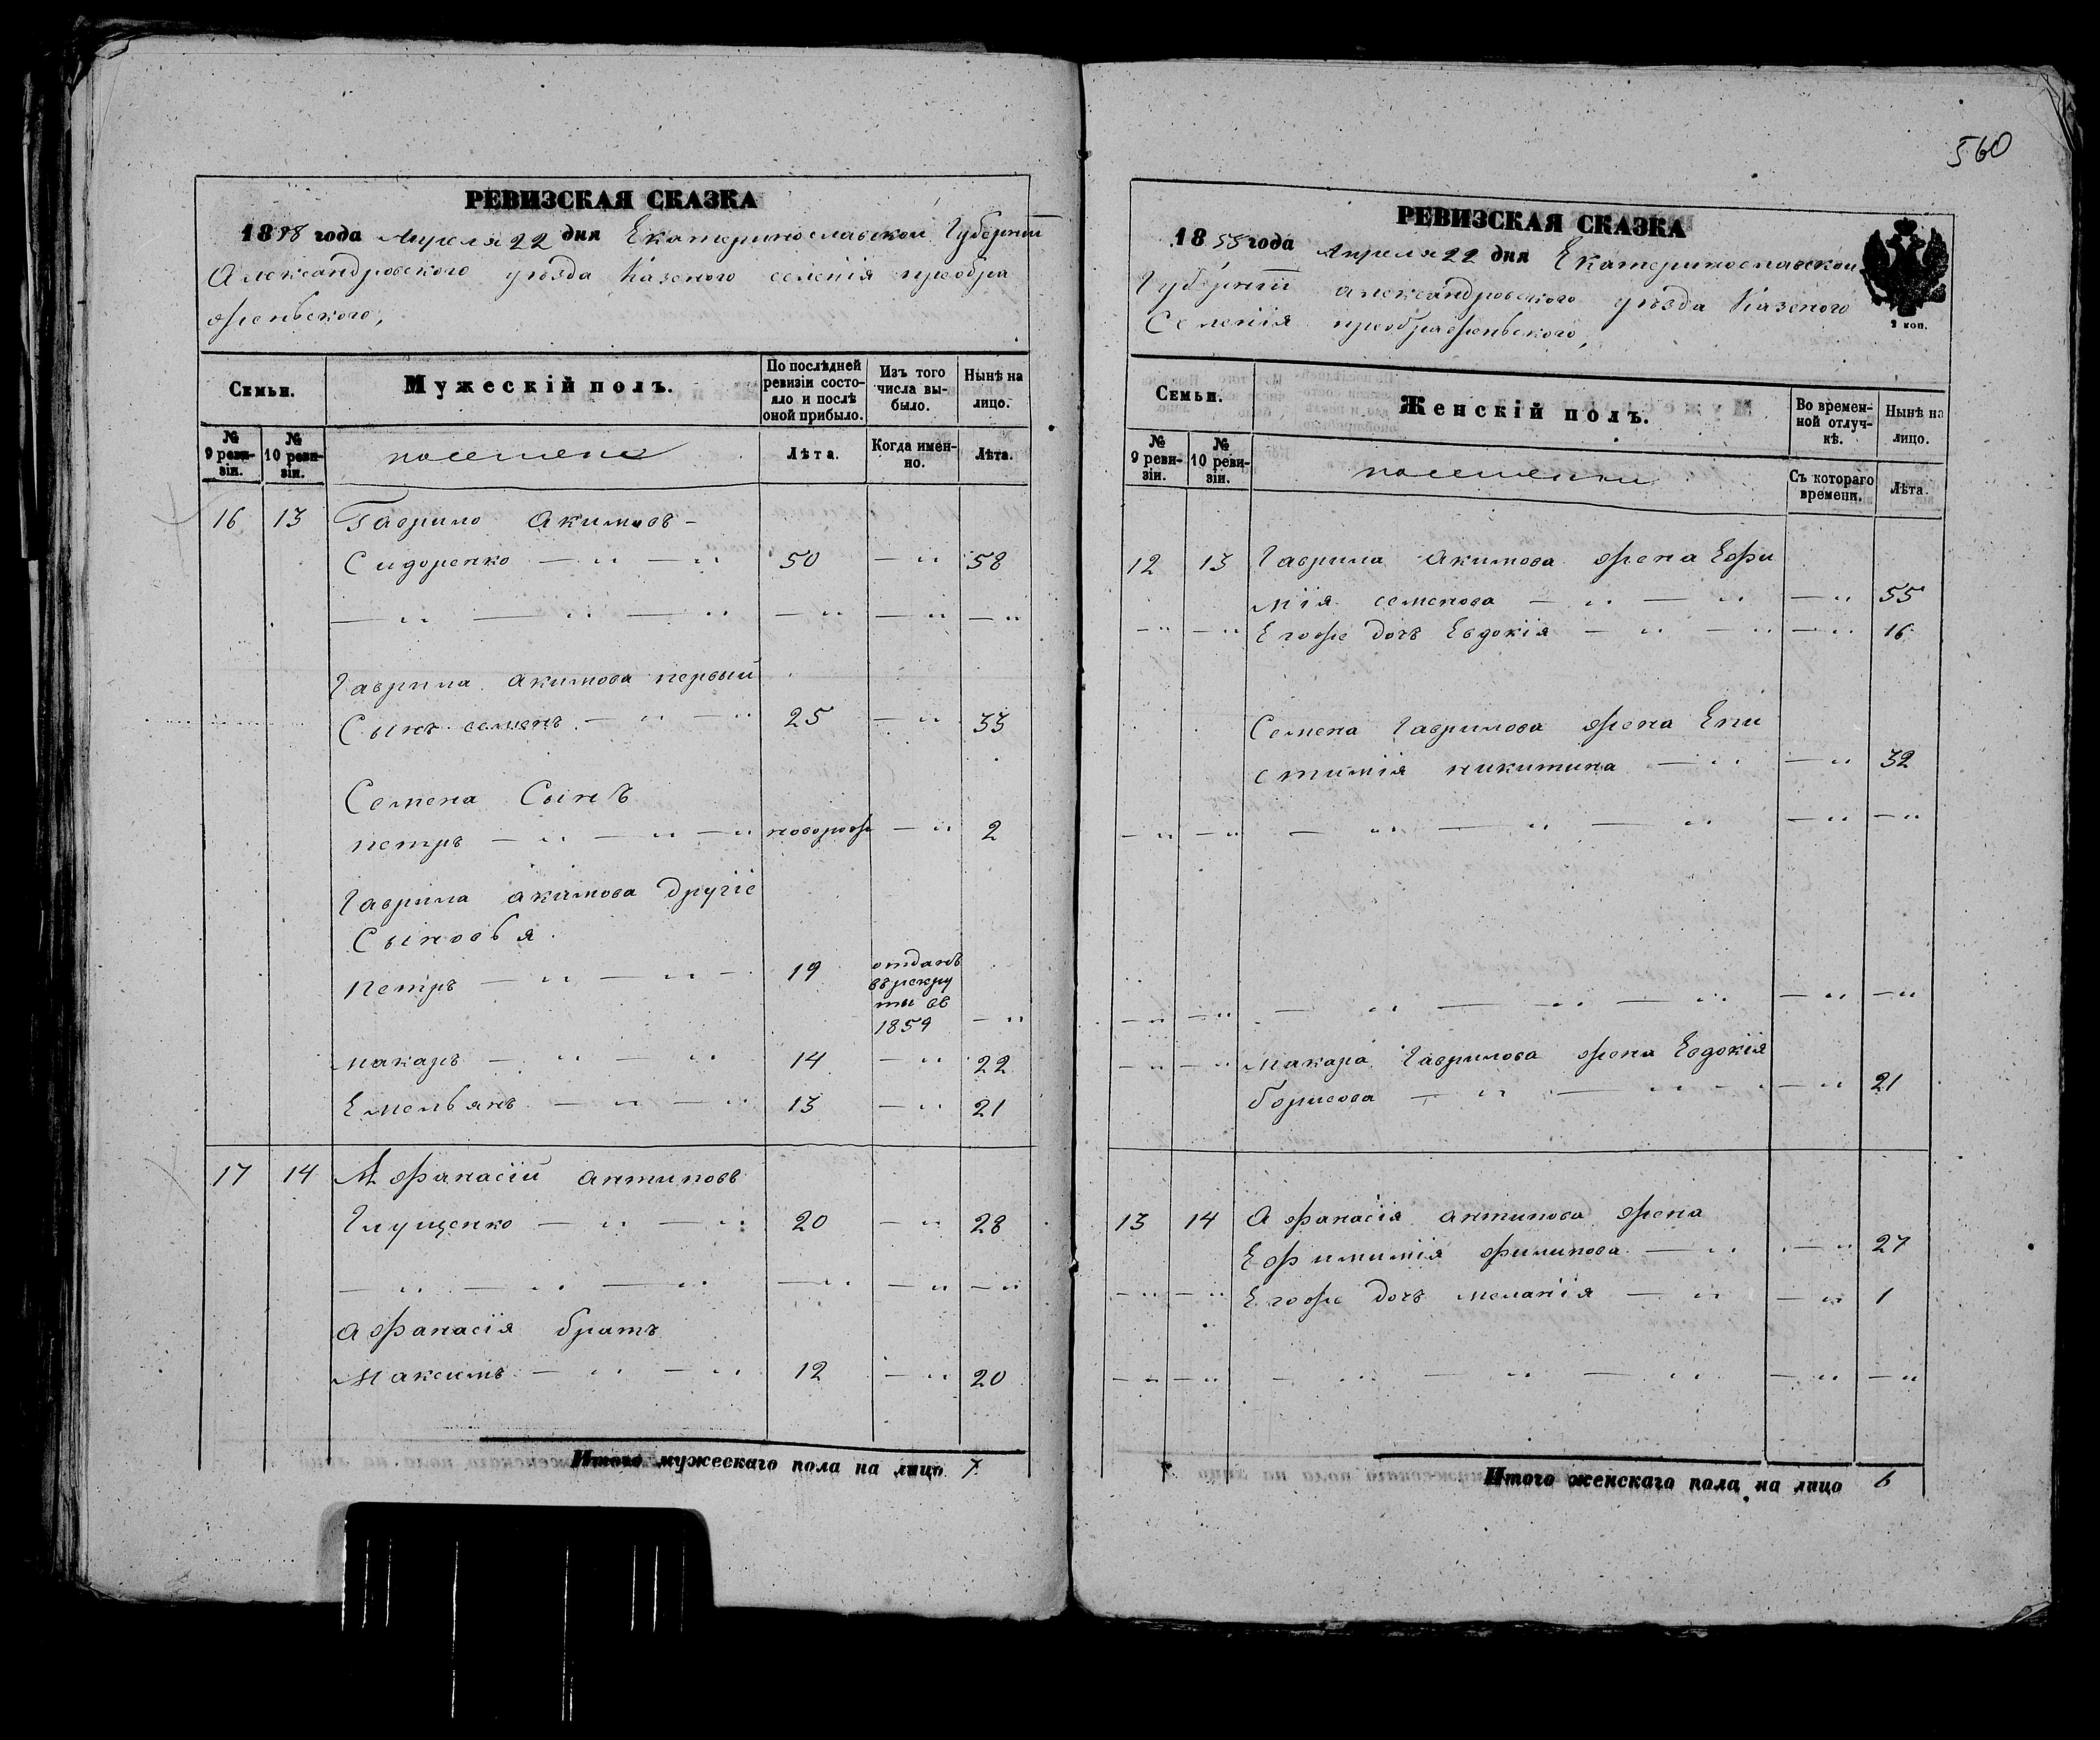 560
РЕВИЗСКАЯ СКАЗКА
1858 года Апреля 22 дня Екатеринославской Губернии
Александровского уезда Казеного селенія преобра
женьского,
Семьи.
Мужескій полъ.
По послѣдней ревизіи состояло и послѣ оной прибыло.
Изъ того числа выбыло.
Нынѣ на лицо.
№ 9 ревизіи.
№ 10 ревизіи.
поселяне
Лѣта.
Когда именно.
Лѣта.
16 13 Гаврило Акимовъ -
Сидоренко — " — " 50 — " 58
— " — " — " — " — " — "
Гаврила акимова первый
Сынъ семенъ — " — " 25 — " 33
Семена Сынъ
петръ — " — " — " новорож — " 2
Гаврила акимова другіе
Сыновья
петръ — " — " — 19 отданъ
въ рекру
ты въ
1854 — "
макаръ — " — " 14 — " 22
Емельянъ — " — " 13 — " 21
17 14 Афанасій антиповъ
Глущенко — " — " 20 — " 28
— " — " — " — " — " — "
афанасія братъ
Максимъ — " — " 12 — " 20
Итого мужескаго пола на лицо 7
РЕВИЗСКАЯ СКАЗКА
1858 года Апреля 22 дня Екатеринославской
Губерніи александровского уезда Казеного
Селенія преображеньского,
2 коп.
Семьи.
Женскій полъ.
Во временной отлучкѣ.
Нынѣ на лицо.
№ 9 ревизіи.
№ 10 ревизіи.
поселянки
Съ котораго времени.
Лѣта.
12 13 Гаврила акимова жена Ефи
мія семенова — " — " — " 55
— " — " Егоже дочь Евдокія — " — " — " 16
Семена Гаврилова жена Епи
стимія никитина — " — " 32
— " — " — " — " — " — " — "
— " — " — " — " — " — " — "
— " — " макара Гаврилова жена Евдокія
борисова — " — " — — " 21
13 14 афанасія антипова жена
Ефимимія филипова — " — " 27
— " — " Егоже дочь меланія — " — " 1
— " — " — " — " — " — " — "
Итого женскаго пола на лицо 6